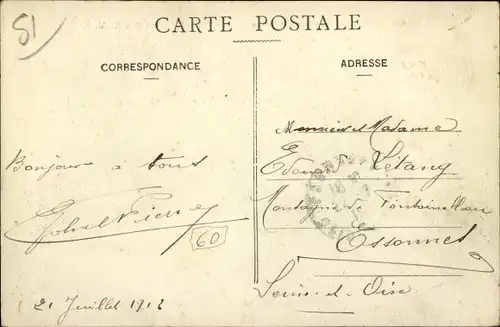 51
CARTE POSTALE
CORRESPONDANCE
ADRESSE
Bonjour à tous
Pierre
60
21 Juillet 1912
Monsieur et Madame
Edouard Létang
Montagne de Fontainebleau
Essonnes
Seine-et-Oise